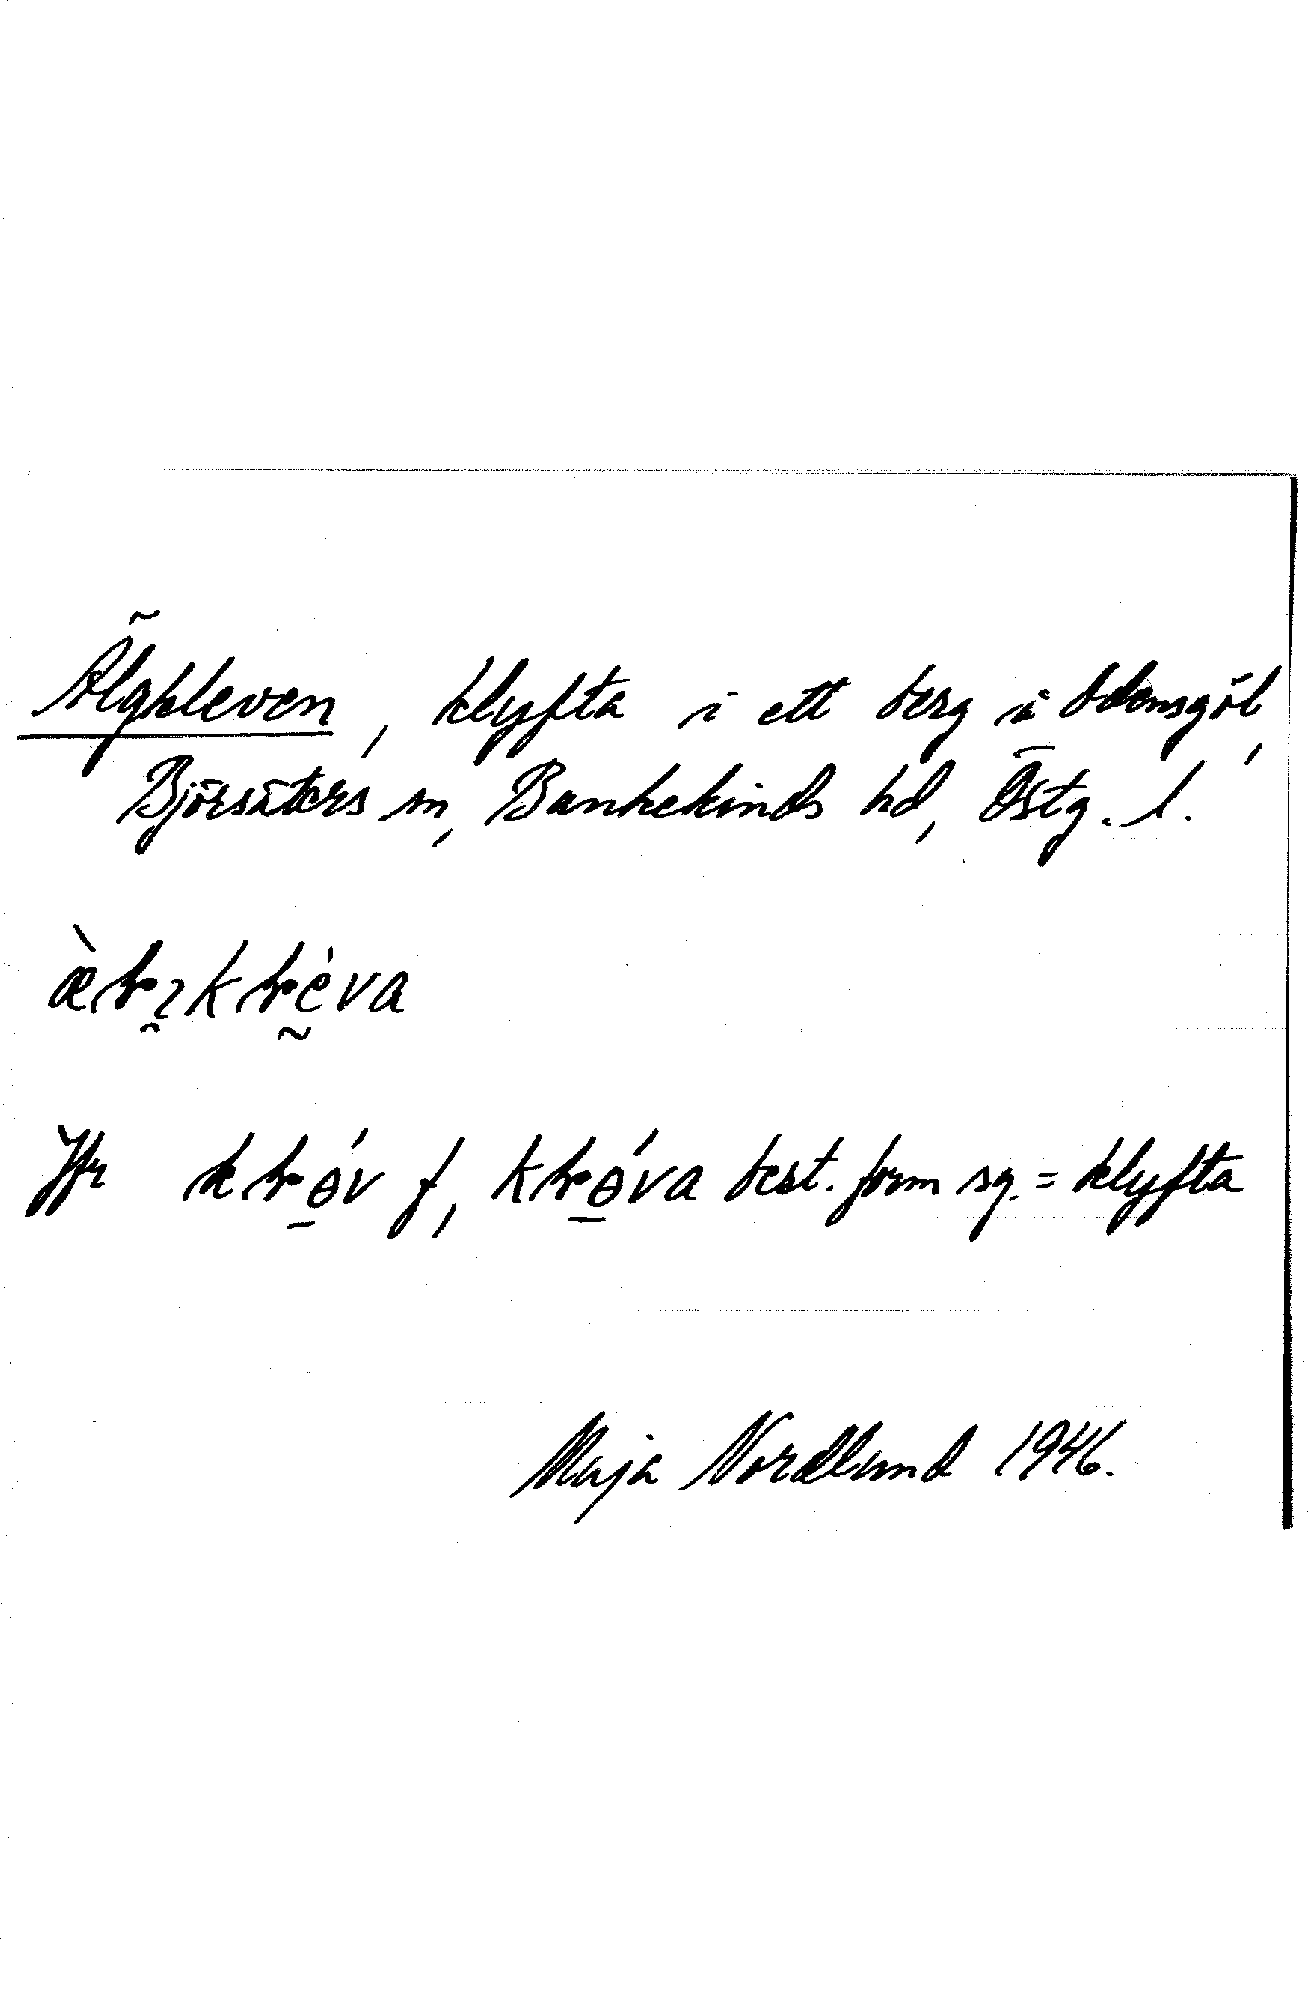 Älgkleven, klyfta i ett berg å Odensgöl,
Björsäters sn, Bankekinds hd, Östg. l.
Jfr f, best. form sg. = klyfta
Maja Nordlund 1946.